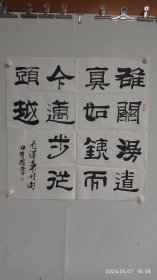 雄關漫道
真如鐵而
今邁步從
頭越
毛澤東詞句
2024.05.07 16:08